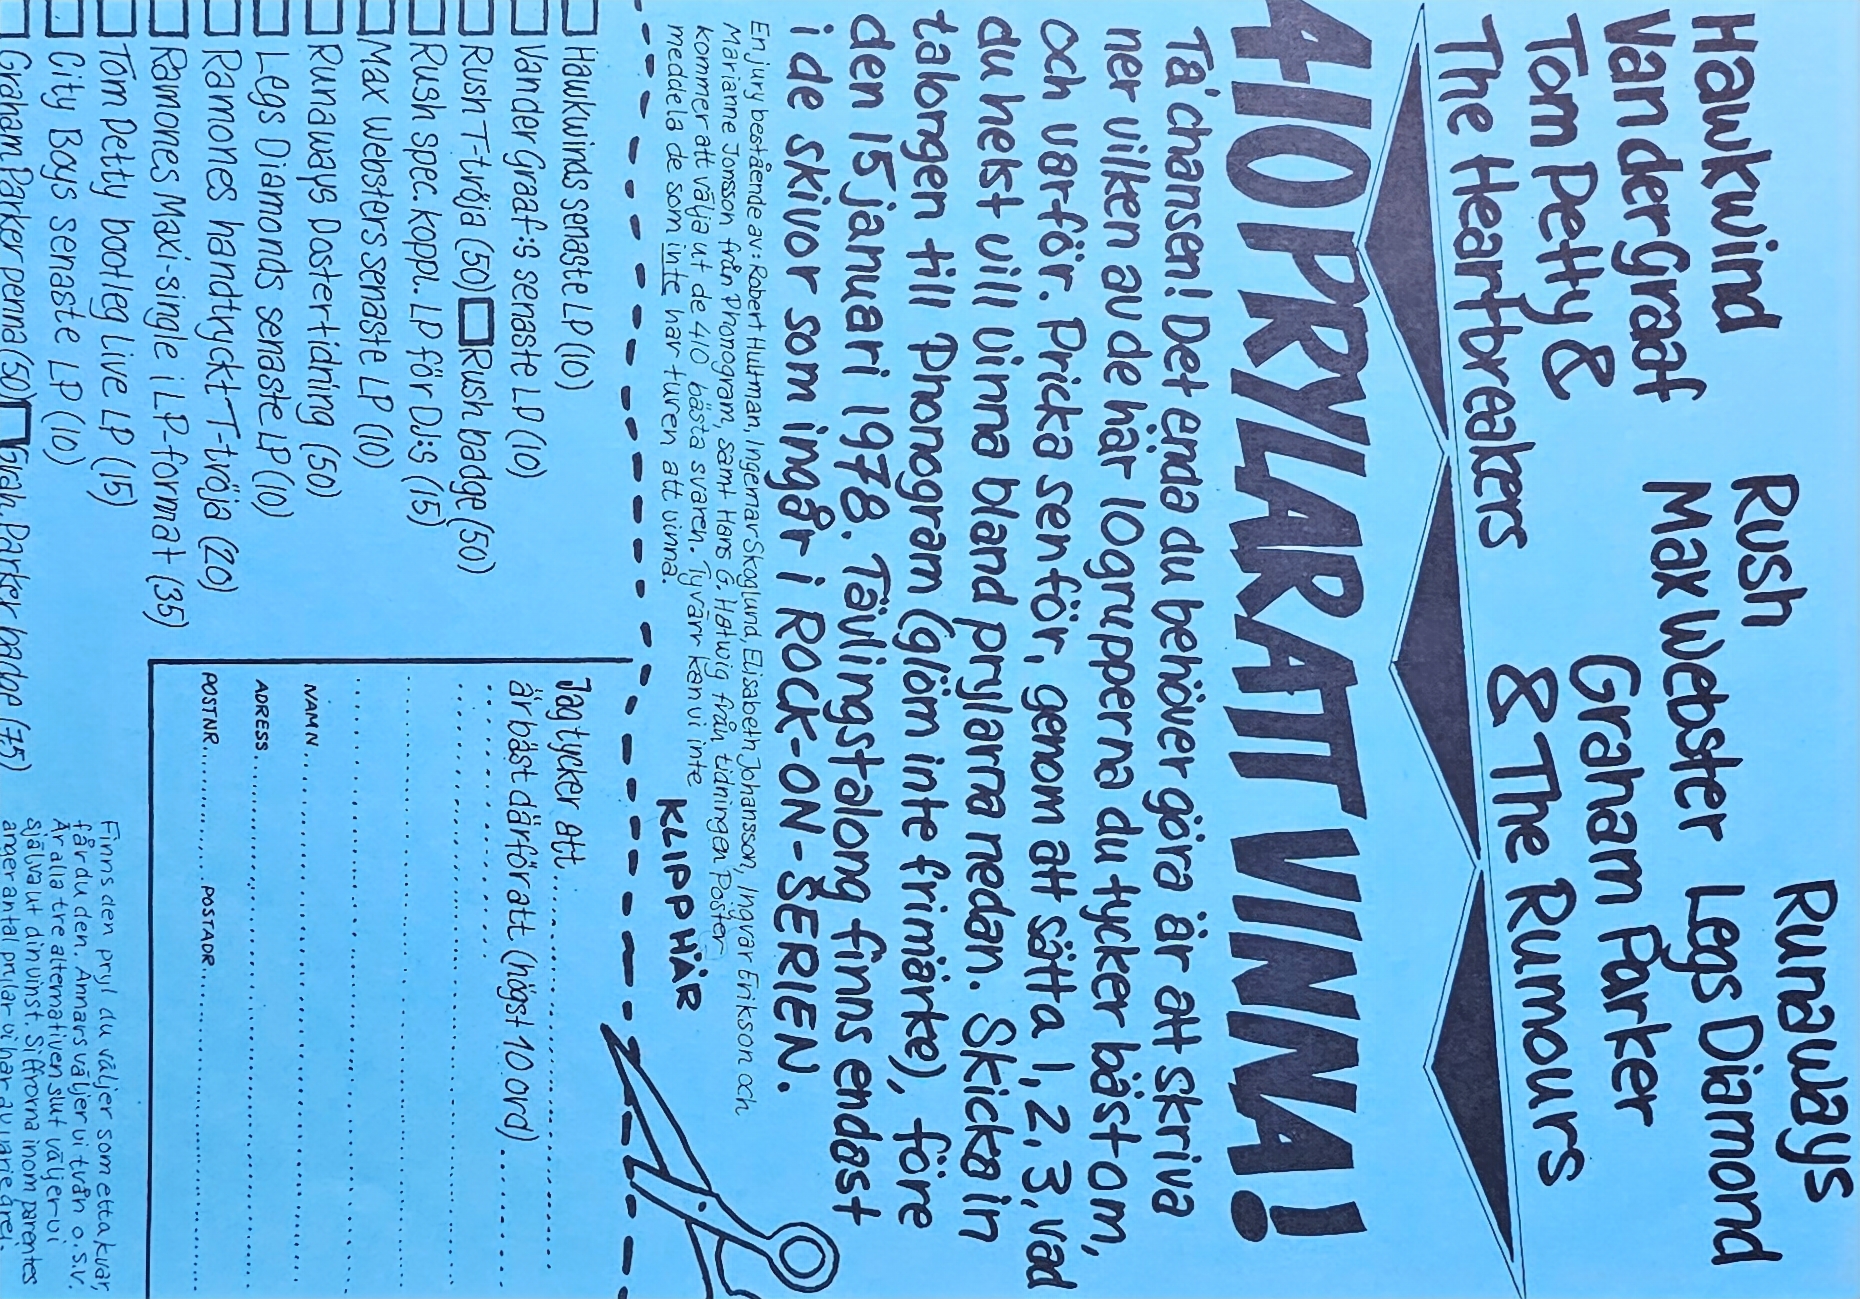 Hawkwind
Van der Graaf
Tom Petty &
The Heartbreakers
Rush
Max Webster
Graham Parker
& The Rumours
Runaways
Legs Diamond
410 PRYLAR ATT VINNA!
Ta' chansen! Det enda du behöver göra är att skriva
ner vilken av de här 10 grupperna du tycker bäst om,
och varför. Pricka sen för, genom att sätta 1, 2, 3, vad
du helst vill vinna bland prylarna nedan. Skicka in
talongen till Phonogram (glöm inte frimärke), före
den 15 januari 1978. Tävlingstalong finns endast
i de skivor som ingår i ROCK-ON-SERIEN.
En jury bestående av: Robert Hultman, Ingemar Skoglund, Elisabeth Johansson, Ingvar Erikson och
Marianne Jonsson från Phonogram, samt Hans G. Hatwig från tidningen Poster
kommer att välja ut de 410 bästa svaren. Tyvärr kan vi inte
meddela de som inte har turen att vinna.
KLIPP HÄR
Hawkwinds senaste LP (10)
Van der Graaf:s senaste LP (10)
Rush T-tröja (50) Rush badge (50)
Rush spec. koppl. LP för DJ:s (15)
Max Websters senaste LP (10)
Runaways Postertidning (50)
Legs Diamonds senaste LP (10)
Ramones handtryckt T-tröja (20)
Ramones Maxi-single i LP-format (35)
Tom Petty bootleg Live LP (15)
City Boys senaste LP (10)
Graham Parker penna (50) Grah. Parker badge (75)
Jag tycker att
är bäst därför att (högst 10 ord)
NAMN
ADRESS
POSTNR POSTADR
Finns den pryl du väljer som etta kvar,
får du den. Annars väljer vi tvån o.s.v.
Är alla tre alternativen slut väljer vi
själva ut din vinst. Siffrorna inom parentes
anger antal prylar vi har av varje grej.